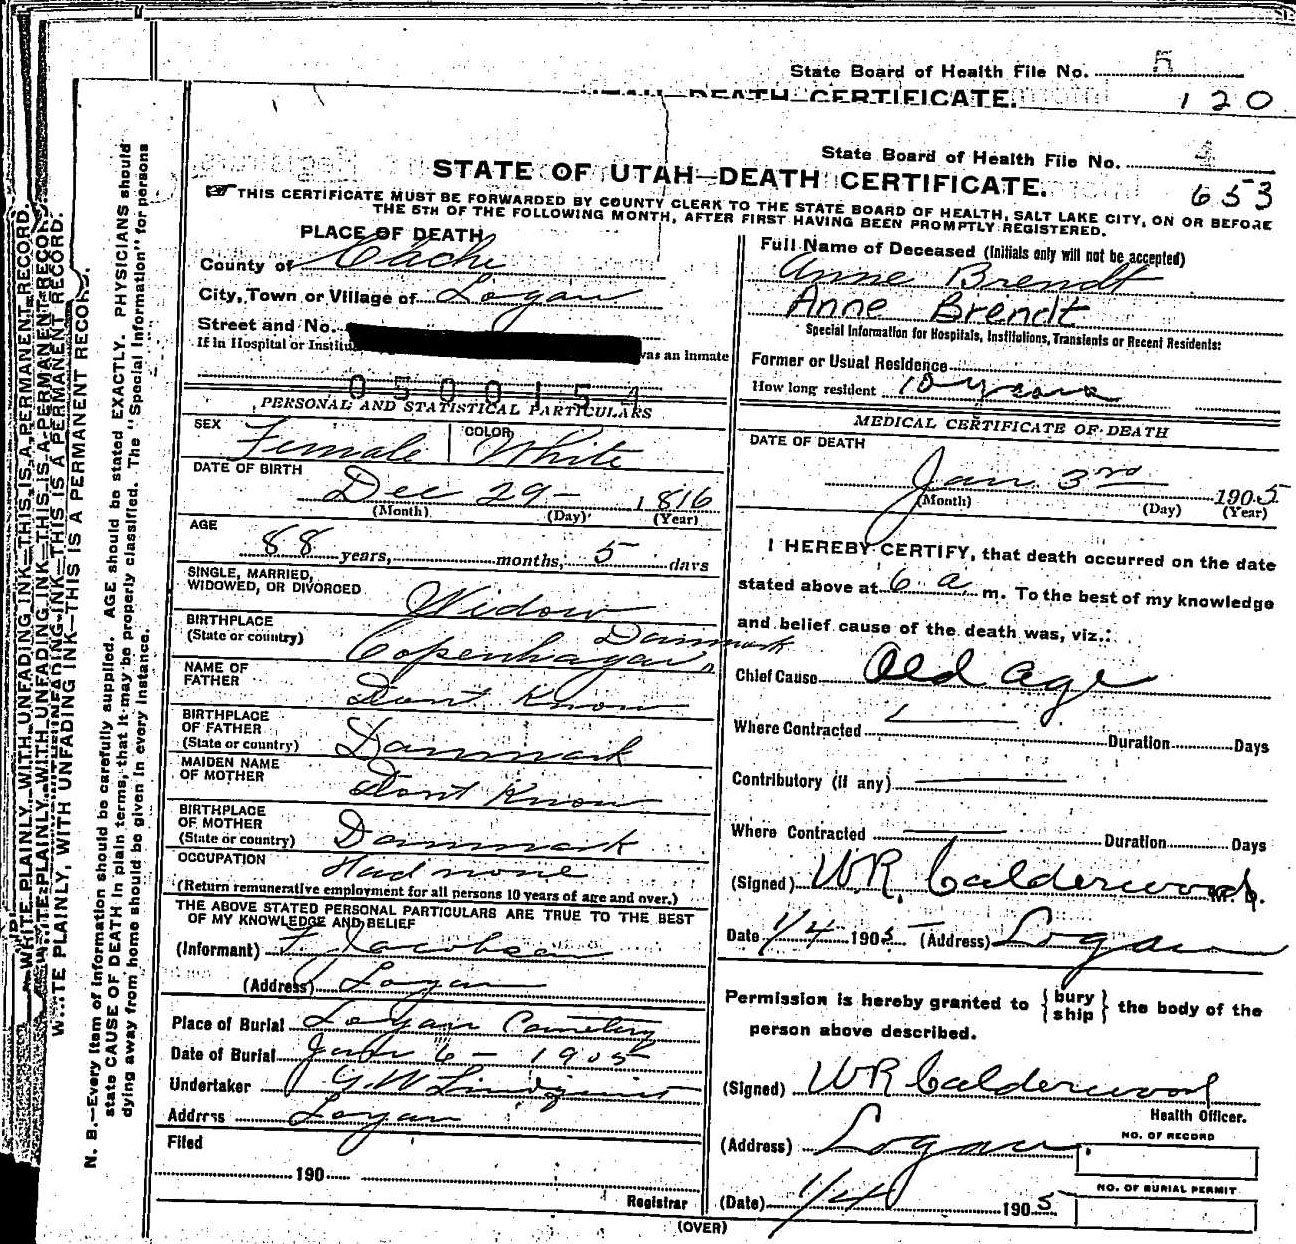 State Board of Health File No. 5
UTAH—DEATH CERTIFICATE.
120
State Board of Health File No. 4
STATE OF UTAH—DEATH CERTIFICATE.
653
☞THIS CERTIFICATE MUST BE FORWARDED BY COUNTY CLERK TO THE STATE BOARD OF HEALTH, SALT LAKE CITY, ON OR BEFORE
THE 5TH OF THE FOLLOWING MONTH, AFTER FIRST HAVING BEEN PROMPTLY REGISTERED.
PLACE OF DEATH
County of Cache
City, Town or Village of Logan
Street and No.
If in Hospital or Institu was an Inmate
050 0154
PERSONAL AND STATISTICAL PARTICULARS
SEX Female COLOR White
DATE OF BIRTH
Dec 29 - 1816
(Month) (Day) (Year)
AGE
88 years, months, 5 days
SINGLE, MARRIED,
WIDOWED, OR DIVORCED Widow
BIRTHPLACE
(State or country) Copenhagen Danmark
NAME OF
FATHER Dont Know
BIRTHPLACE
OF FATHER
(State or country) Danmark
MAIDEN NAME
OF MOTHER Dont Know
BIRTHPLACE
OF MOTHER
(State or country) Danmark
OCCUPATION Had none
(Return remunerative employment for all persons 10 years of age and over.)
THE ABOVE STATED PERSONAL PARTICULARS ARE TRUE TO THE BEST
OF MY KNOWLEDGE AND BELIEF
(Informant) F. Jacobsen
(Address) Logan
Place of Burial Logan Cemetery
Date of Burial Jan 6 - 1905
Undertaker G. W Lindquist
Address Logan
Filed
190
Registrar
(OVER)
Full Name of Deceased (Initials only will not be accepted)
Anne Brendt
Anne Brendt
Special Information for Hospitals, Institutions, Transients or Recent Residents:
Former or Usual Residence
How long resident 10 years
MEDICAL CERTIFICATE OF DEATH
DATE OF DEATH
Jan 3rd 1905
(Month) (Day) (Year)
I HEREBY CERTIFY, that death occurred on the date
stated above at 6 a. m. To the best of my knowledge
and belief cause of the death was, viz.:
Chief Cause Old age
Where Contracted Duration Days
Contributory (if any)
Where Contracted Duration Days
(Signed) W.R. Calderwood M.D.
Date 1/4 1905 (Address) Logan
Permission is hereby granted to {bury
ship} the body of the
person above described.
(Signed) WR Calderwood
Health Officer.
(Address) Logan.
NO. OF RECORD
NO. OF BURIAL PERMIT
(Date) 1/4 1905
WRITE PLAINLY, WITH UNFADING INK—THIS IS A PERMANENT RECORD.
WRITE PLAINLY, WITH UNFADING INK—THIS IS A PERMANENT RECORD.
WRITE PLAINLY, WITH UNFADING INK—THIS IS A PERMANENT RECORD.
W..TE PLAINLY, WITH UNFADING INK—THIS IS A PERMANENT RECORD.
N. B.—Every item of information should be carefully supplied. AGE should be stated EXACTLY. PHYSICIANS should
state CAUSE OF DEATH in plain terms, that it may be properly classified. The "Special Information" for persons
dying away from home should be given in every instance.